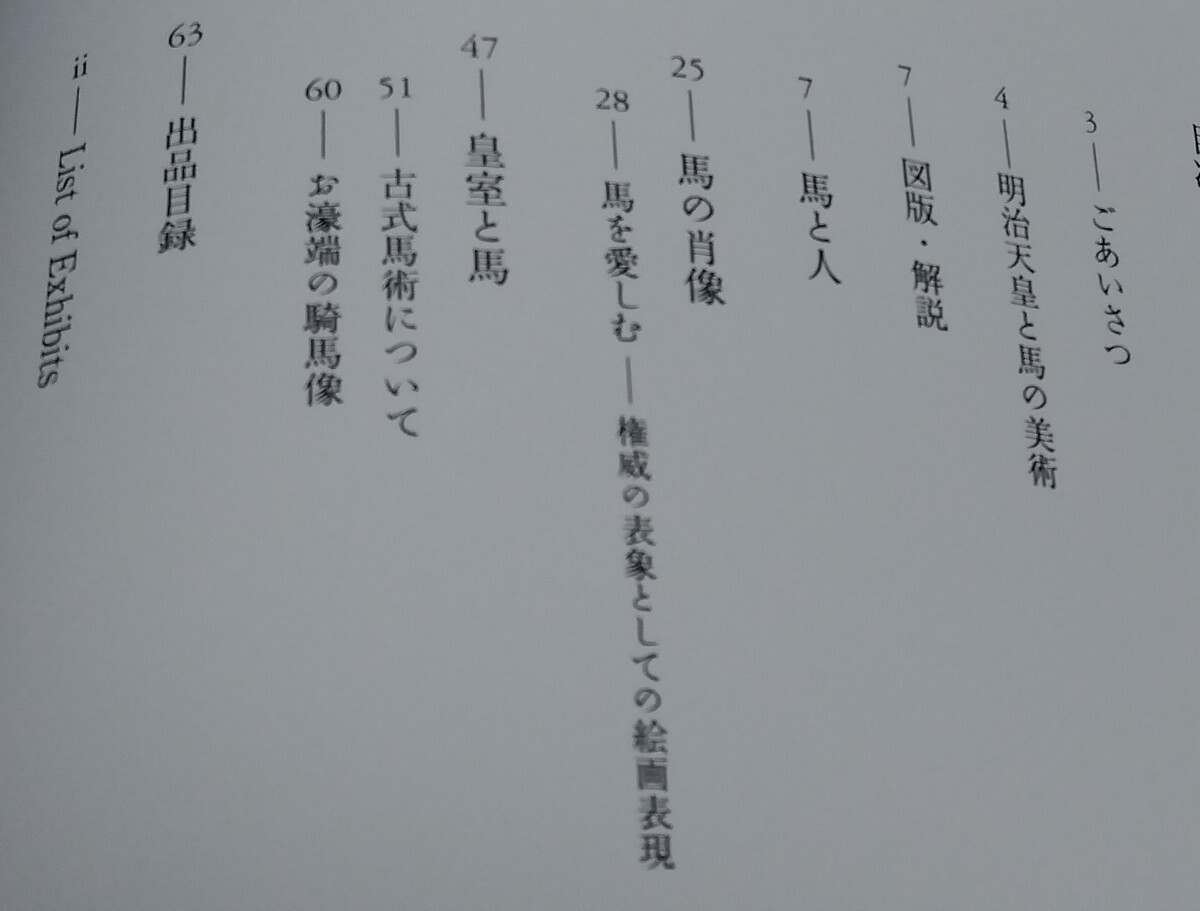 3 ── ごあいさつ
4 ── 明治天皇と馬の美術
7 ── 図版・解説
7 ── 馬と人
25 ── 馬の肖像
28 ── 馬を愛しむ ── 権威の表象としての絵画表現
47 ── 皇室と馬
51 ── 古式馬術について
60 ── お濠端の騎馬像
63 ── 出品目録
ii ── List of Exhibits